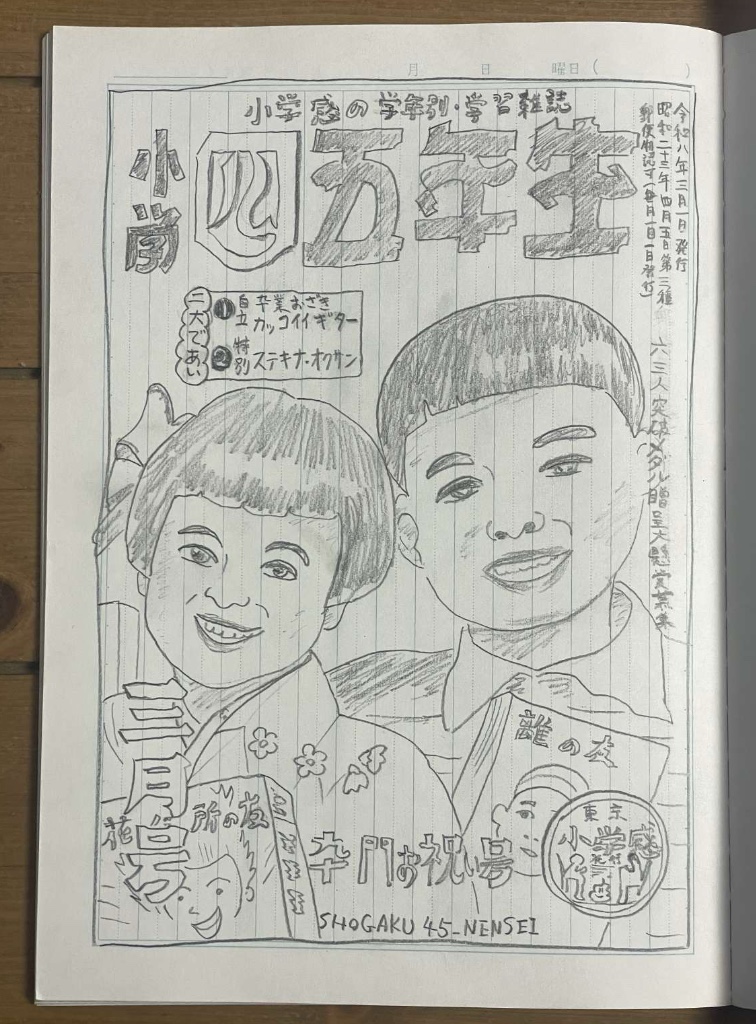 月 日 曜日( )
小学感の学年別・学習雑誌
小学四五年生
令和八年三月一日発行
昭和二十三年四月五日第三種
郵便物認可(毎月一回一日発行)
六三人突破メダル贈呈大懸賞募集
二大であい
❶自立 卒業おさき カッコイイギター
❷特別 ステキナ・オクサン
三月号
所の友
離の友
卒門お祝い号
東京
小学感
SHOGAKU 45-NENSEI